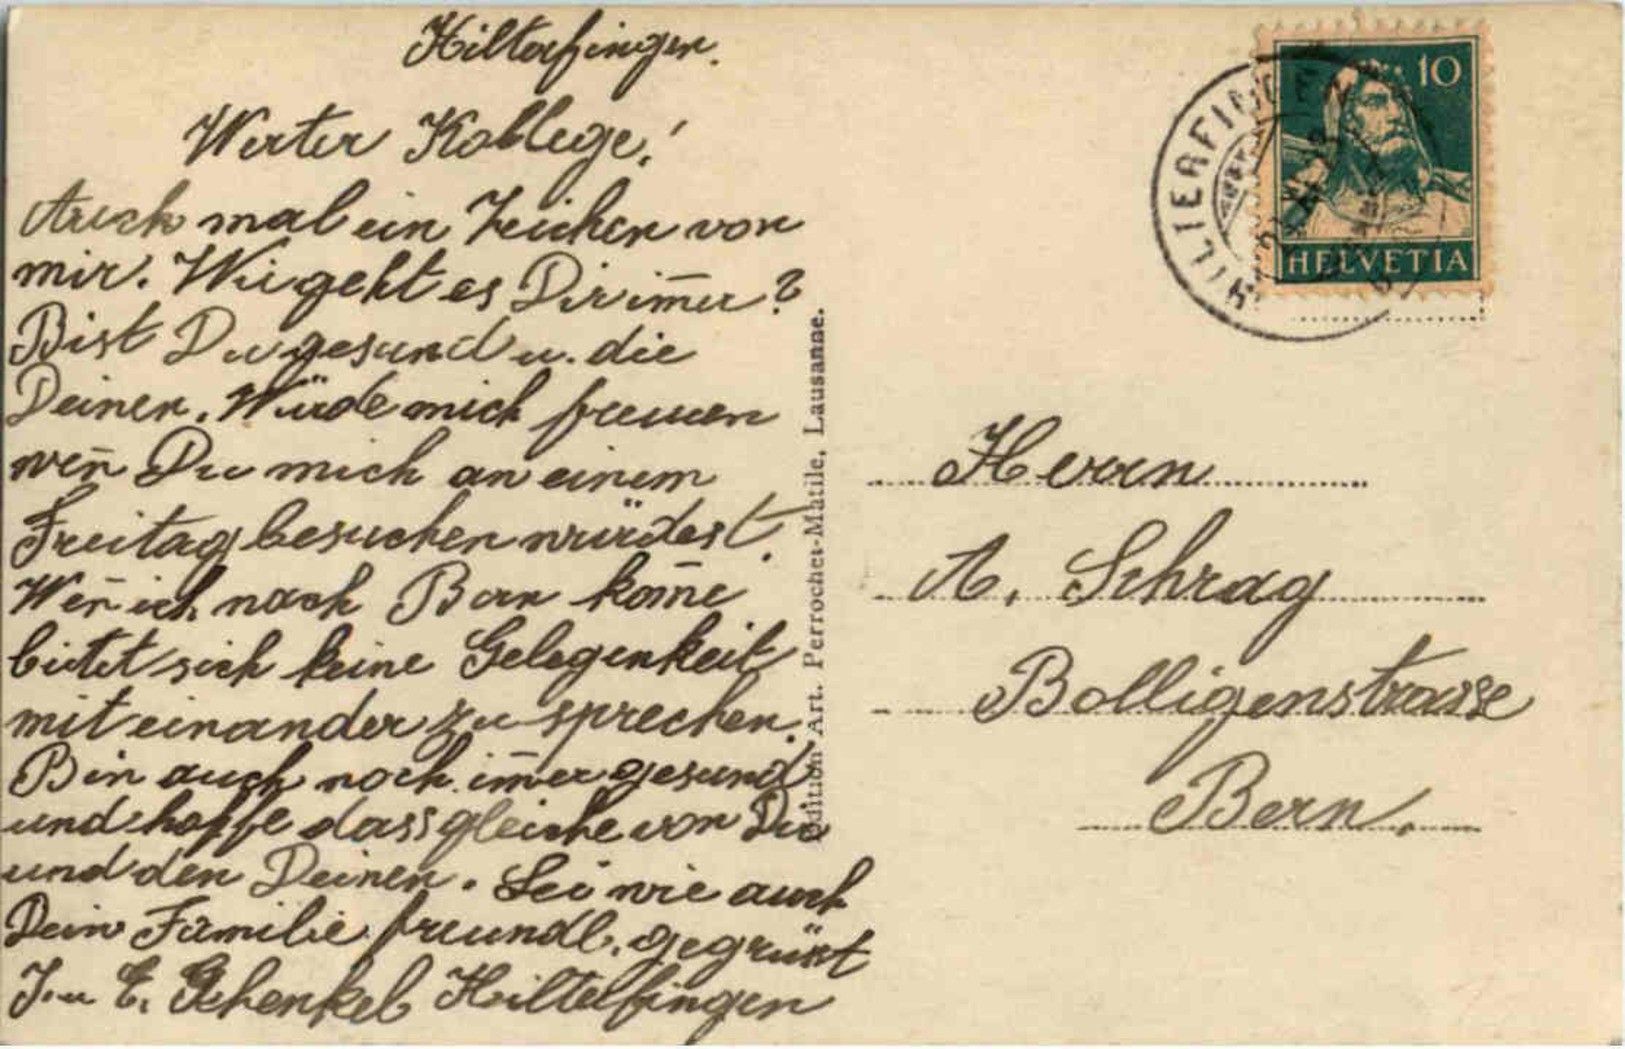 Hilterfingen.
Werter Kollege!
Auch mal ein Zeichen von
mir. Wie geht es Dir im̄er?
Bist Du gesund u. die
Deinen. Würde mich freuen
wen̄ Du mich an einem
Freitag besuchen würdest.
Wen̄ ich nach Bern kom̄e
bietet sich keine Gelegenkeit
mit einander zu sprechen.
Bin auch noch im̄er gesund
und hoffe dass gleiche von Dir
und den Deinen. Sei wie auch
Dein Familie freundl. gegrüsst
J. u E. Schenkel Hilterfingen
Edition Art. Perrochet-Matile, Lausanne.
HILTERFINGEN
10
HELVETIA
Herrn
A. Schrag
Bolligenstrasse
Bern.